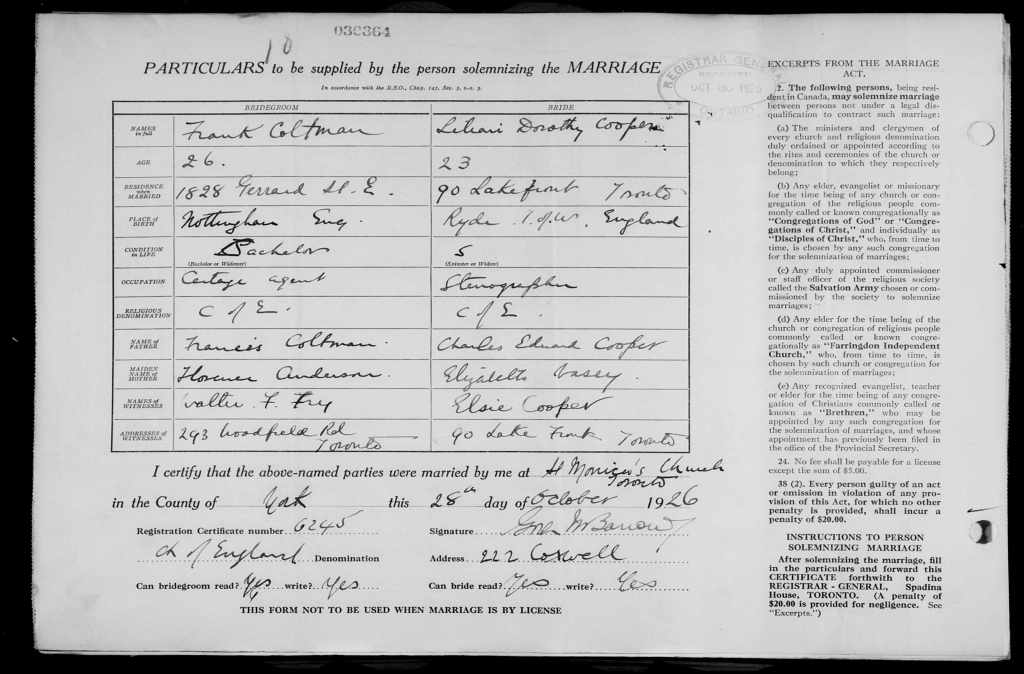 036364
10
PARTICULARS to be supplied by the person solemnizing the MARRIAGE
In accordance with the R.S.O., Chap. 147, Sec. 3, s-s. 3.
REGISTRAR GENERAL
OCT 30 1926
ONTARIO
BRIDEGROOM BRIDE
NAMES in full Frank Coltman Lilian Dorothy Cooper
AGE 26. 23
RESIDENCE when MARRIED 1828 Gerrard St. E. 90 Lakefront Toronto
PLACE of BIRTH Nottingham Eng. Ryde I. of W. England
CONDITION in LIFE Bachelor S
(Bachelor or Widower) (Spinster or Widow)
OCCUPATION Cartage agent Stenographer
RELIGIOUS DENOMINATION C of E. C of E.
NAME of FATHER Francis Coltman. Charles Edward Cooper
MAIDEN NAME of MOTHER Florence Anderson. Elizabeth Vasey.
NAMES of WITNESSES Walter F. Fry Elsie Cooper
ADDRESSES of WITNESSES 293 Woodfield Rd Toronto 90 Lake Front Toronto
I certify that the above-named parties were married by me at St Monica's Church Toronto
in the County of York this 28th day of October 1926
Registration Certificate number 6245 Signature
Ch of England Denomination Address 222 Coxwell
Can bridegroom read? Yes write? Yes Can bride read? Yes write? Yes
THIS FORM NOT TO BE USED WHEN MARRIAGE IS BY LICENSE
EXCERPTS FROM THE MARRIAGE
ACT.
2. The following persons, being resi-
dent in Canada, may solemnize marriage
between persons not under a legal dis-
qualification to contract such marriage:
(a) The ministers and clergymen of
every church and religious denomination
duly ordained or appointed according to
the rites and ceremonies of the church or
denomination to which they respectively
belong;
(b) Any elder, evangelist or missionary
for the time being of any church or con-
gregation of the religious people com-
monly called or known congregationally as
"Congregations of God" or "Congre-
gations of Christ," and individually as
"Disciples of Christ," who, from time to
time, is chosen by any such congregation
for the solemnization of marriages;
(c) Any duly appointed commissioner
or staff officer of the religious society
called the Salvation Army chosen or com-
missioned by the society to solemnize
marriages;
(d) Any elder for the time being of the
church or congregation of religious people
commonly called or known congre-
gationally as "Farringdon Independent
Church," who, from time to time, is
chosen by such church or congregation for
the solemnization of marriages;
(e) Any recognized evangelist, teacher
or elder for the time being of any congre-
gation of Christians commonly called or
known as "Brethren," who may be
appointed by any such congregation for
the solemnization of marriages, and whose
appointment has previously been filed in
the office of the Provincial Secretary.
24. No fee shall be payable for a license
except the sum of $5.00.
38 (2). Every person guilty of an act
or omission in violation of any pro-
vision of this Act, for which no other
penalty is provided, shall incur a
penalty of $20.00.
INSTRUCTIONS TO PERSON
SOLEMNIZING MARRIAGE
After solemnizing the marriage, fill
in the particulars and forward this
CERTIFICATE forthwith to the
REGISTRAR-GENERAL, Spadina
House, TORONTO. (A penalty of
$20.00 is provided for negligence. See
"Excerpts.")